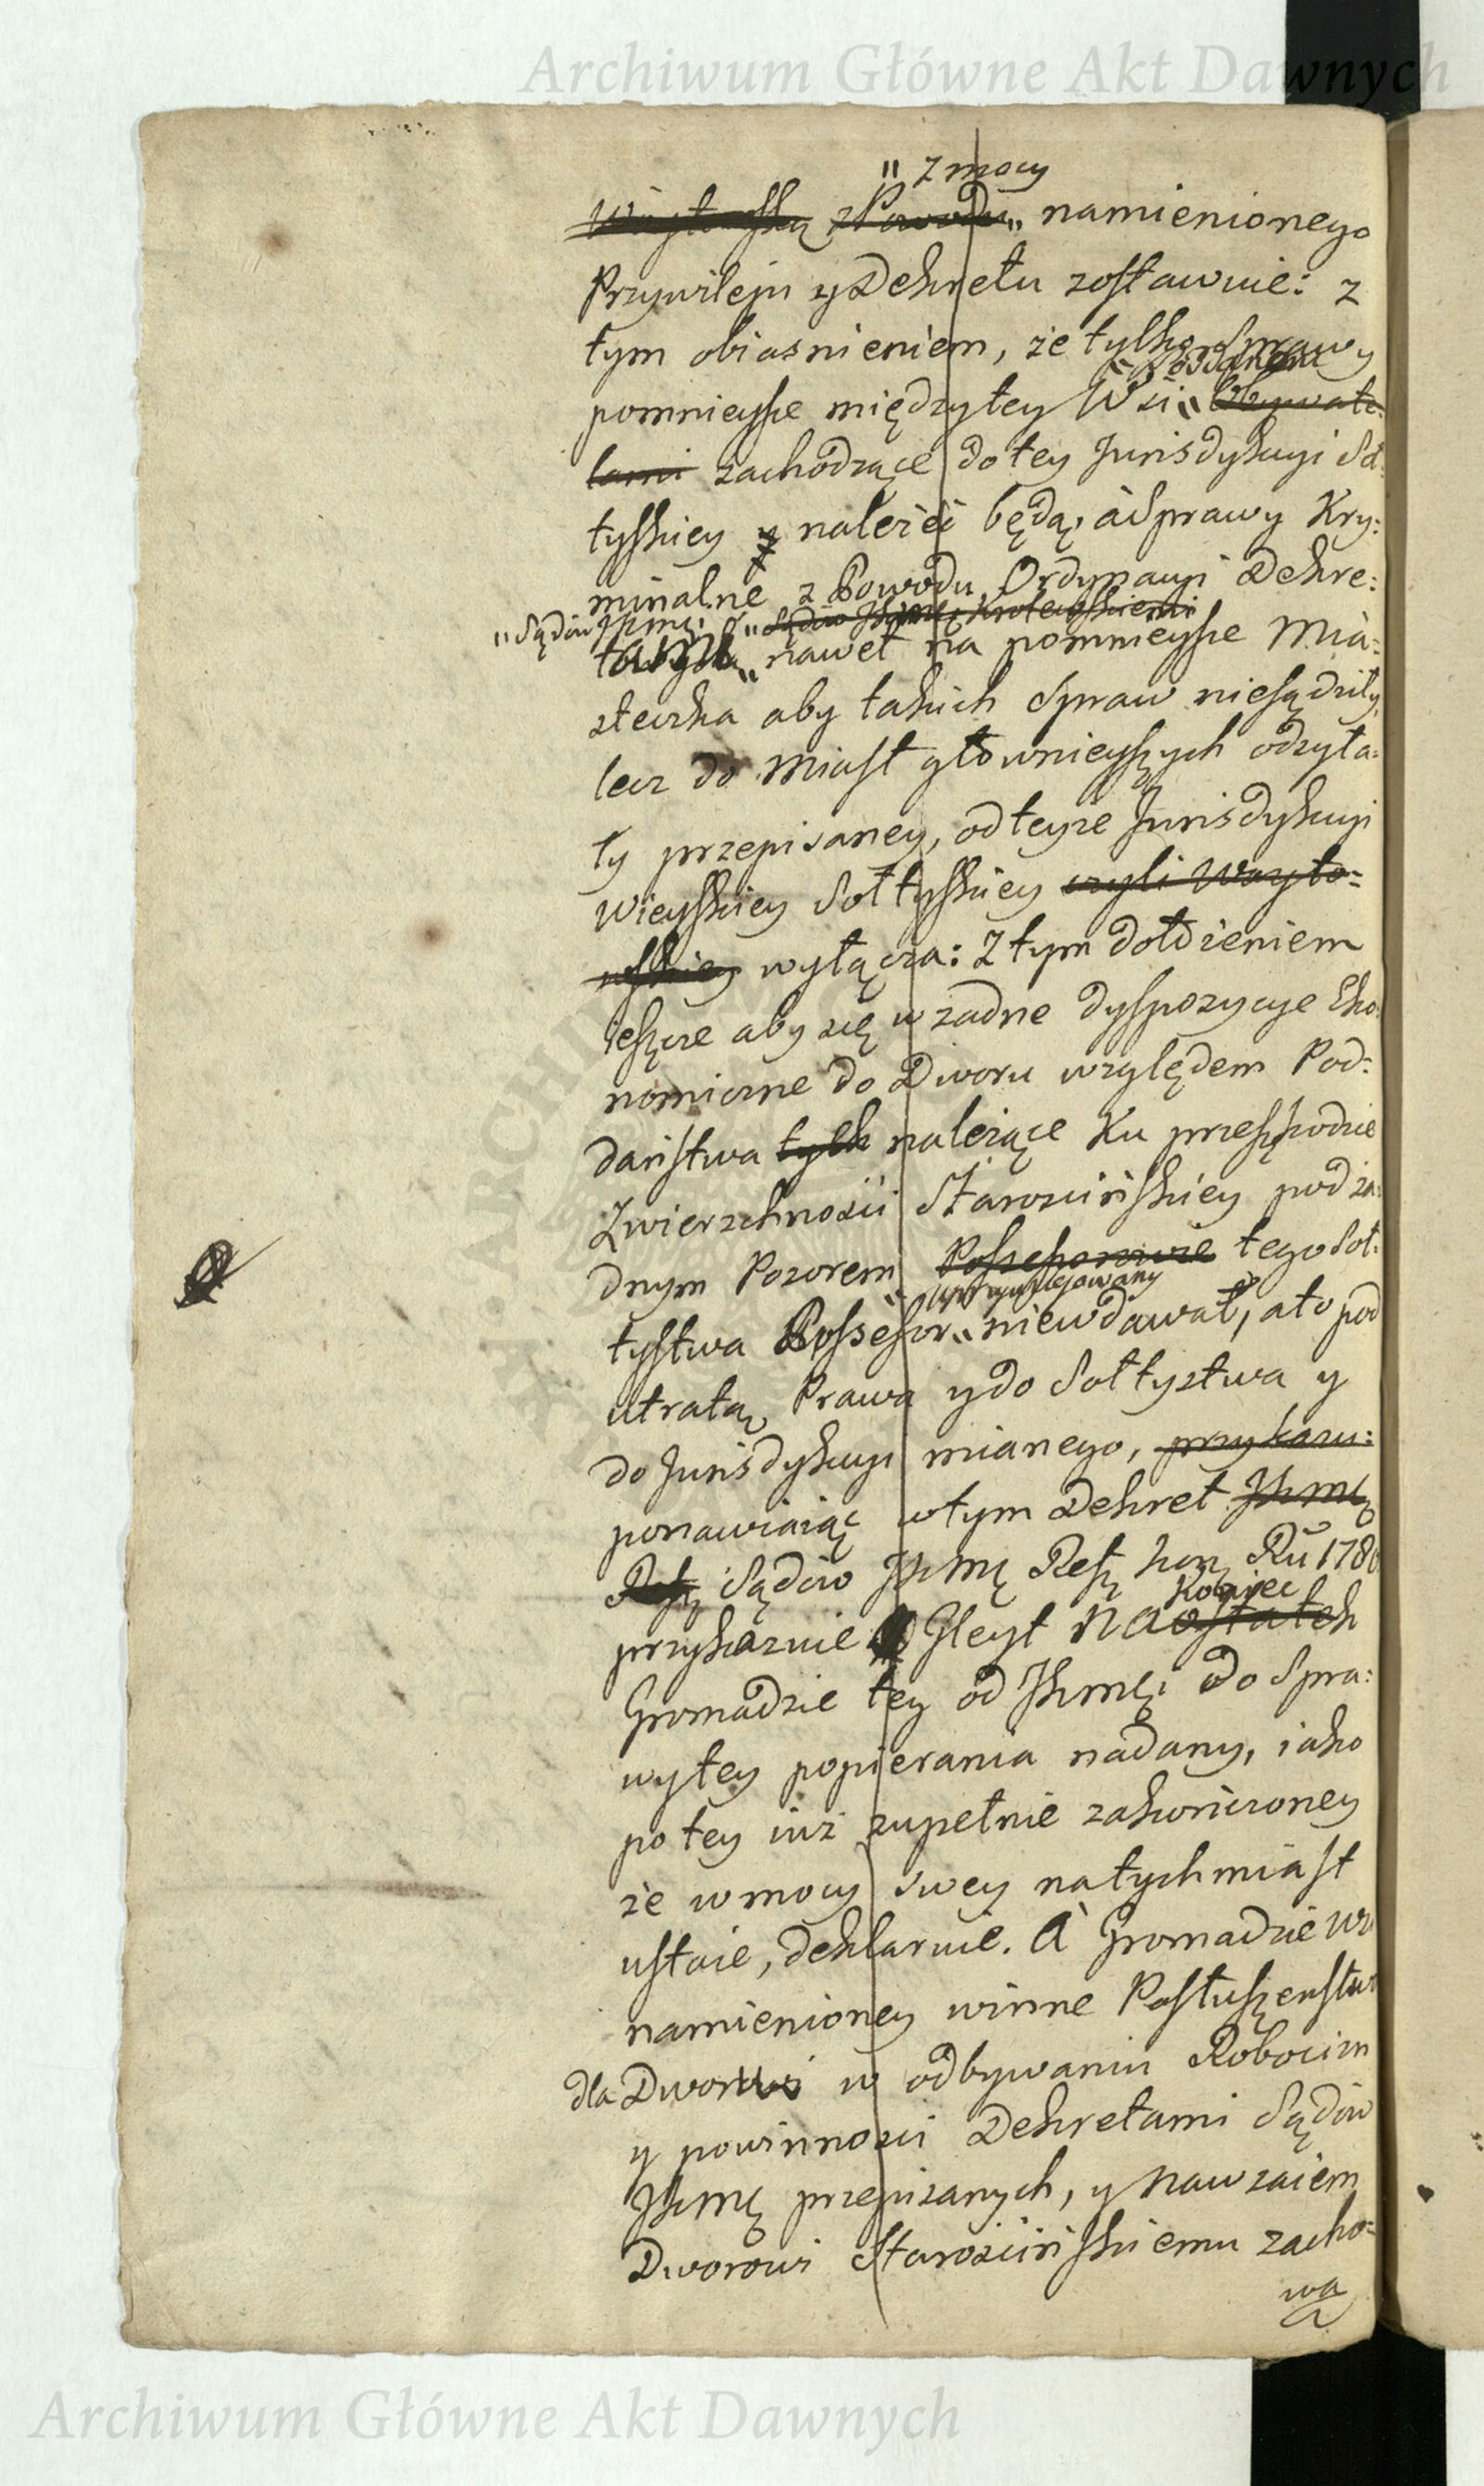 Archiwum Główne Akt Dawnych
" z mocy
Woytowską z Powodu " namienionego
Przywileju y Dekretu zostawuie: z
tym obiasnieniem, że tylko Sprawy
" Poddanemi
pomnieysze między tey Wsi " Obywate:
lami zachodzące do tey Jurisdykcyi Soł:
tyskiey y należeć będą, à Sprawy Kry:
minalne z Powodu Ordynacyi Dekre:
" Sądów JKmci " Sądów JKmci Krolewskiemi
tami " nawet na pomnieysze Mia:
steczka aby takich Spraw niesądziły,
lecz do Miast głownieyszych odsyła:
ły przepisaney, od teyże Jurisdykcyi
Wieyskiey Sołtyskiey czyli Woyto:
wskiey wyłącza: Z tym dołożeniem
ieszcze aby się w żadne dyspozycye Eko:
nomiczne do Dworu względem Pod:
daństwa tych należące Ku przeszkodzie
Zwierzchności Starościńskiey pod ża:
dnym Pozorem Possessorowie tego Soł:
" uprzywilejowany
tystwa Possessor " niewdawał, a to pod
utratą Prawa y do Sołtystwa y
do Jurisdykcyi mianego, przykazu:
ponawiaiąc w tym Dekret JKmci
Refg Sądów JKMci Refg Kor Ru 178
Koniec
przykazuie Gleyt Na ostatek
Gromadzie tey od JKmci do Spra:
wy tey popierania nadany, iako
po tey iuż zupełnie zakończoney
że w mocy swey natychmiast
ustaie, deklaruie. A Gromadzie wz
namienioney winne Posłuszeństwo
dla Dworu w odbywaniu Robocizn
y powinności Dekretami Sądów
JKMci przepisanych, y Nawzaiem
Dworowi Starościńskiemu zacho:
wa
Archiwum Główne Akt Dawnych